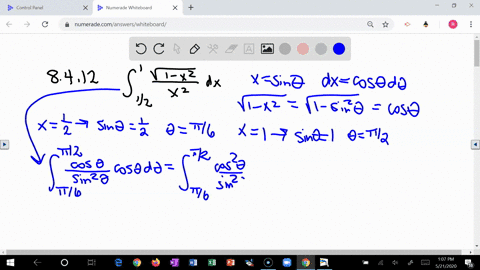 Control Panel
Numerade Whiteboard
numerade.com/answers/whiteboard/
8.4.12 ∫_{1/2}^{1} √(1-x²)/x² dx
x = sinθ dx = cosθdθ
√(1-x²) = √(1-sin²θ) = cosθ
x = 1/2 → sinθ = 1/2 θ = π/6
x = 1 → sinθ=1 θ = π/2
∫_{π/6}^{π/2} cosθ/sin²θ cosθdθ = ∫_{π/6}^{π/2} cos²θ/sin²
1:07 PM
5/21/2020